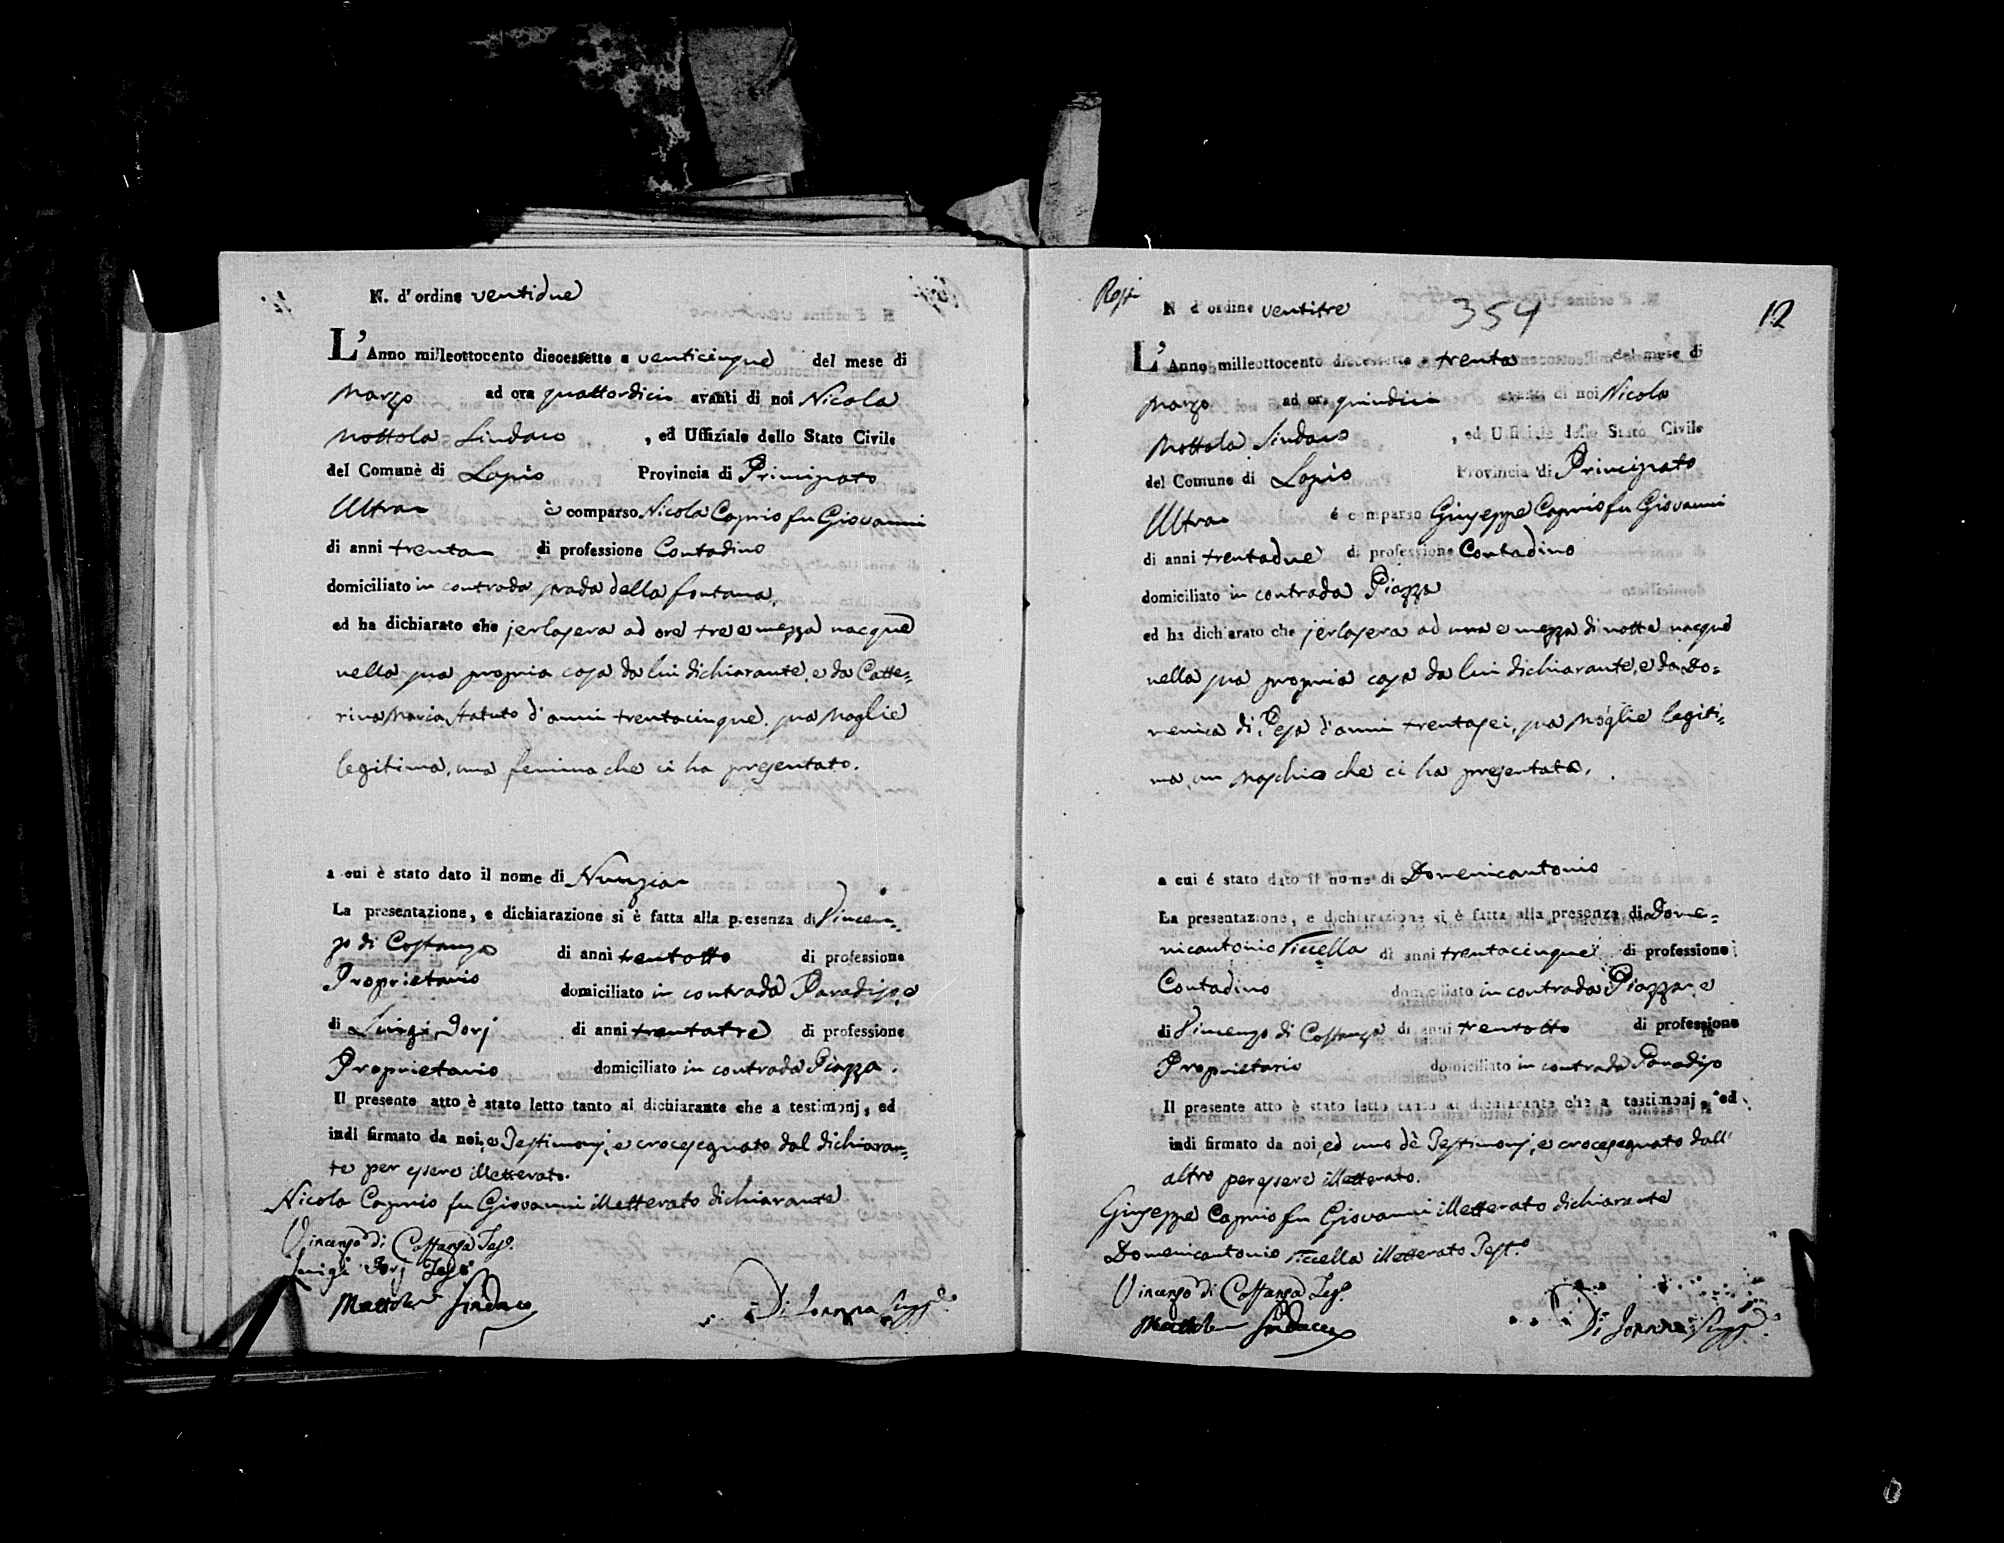 N. d'ordine ventidue
L'Anno milleottocento diecessette a venticinque del mese di
Marzo ad ora quattordici avanti di noi Nicola
Mottola Sindaco , ed Uffiziale dello Stato Civile
del Comune di Lapio Provincia di Principato
Ultra è comparso Nicola Caprio fu Giovanni
di anni trenta di professione Contadino
domiciliato in contrada strada della fontana,
ed ha dichiarato che jerlasera ad ore tre e mezza nacque
nella sua propria casa da lui dichiarante, e da Catte=
rina Maria Statuto d'anni trentacinque, sua Moglie
legitima, una femina che ci ha presentato.
a cui è stato dato il nome di Nunzia
La presentazione, e dichiarazione si è fatta alla presenza di Vincen=
zo di Costanza di anni trentotto di professione
Proprietario domiciliato in contrada Paradiso, e
di Luigi Dorj di anni trentatre di professione
Proprietario domiciliato in contrada Piazza.
Il presente atto è stato letto tanto al dichiarante che a testimonj, ed
indi firmato da noi, e Testimonj, e crocesegnato dal dichiaran=
te per essere illetterato.
Nicola Caprio fu Giovanni illetterato dichiarante
Vincenzo di Costanza Tes.o
Luigi Dorj Tes.o
Mottola Sindaco
Di
N d'ordine ventitre
354
12
L'Anno milleottocento diecessette a trenta del mese di
Marzo ad ora quindici avanti di noi Nicola
Mottola Sindaco , ed Uffiziale dello Stato Civile
del Comune di Lapio Provincia di Principato
Ultra é comparso Giuseppe Caprio fu Giovanni
di anni trentadue di professione Contadino
domiciliato in contrada Piazza
ed ha dichiarato che jerlasera ad una e mezza di notte nacque
nella sua propria casa da lui dichiarante, e da Do=
menica di Pesa d'anni trentasei, sua Moglie legiti=
ma, un Maschio che ci ha presentato.
a cui é stato dato il nome di Domenicantonio
La presentazione, e dichiarazione si è fatta alla presenza di Dome=
nicantonio di anni trentacinque di professione
Contadino domiciliato in contrada Piazza, e
di Vincenzo di Costanza di anni trentotto di professione
Proprietario domiciliato in contrada Paradiso
Il presente atto è stato letto tanto al dichiarante che a testimonj, ed
indi firmato da noi, ed uno dè Testimonj, e crocesegnato dall'
altro per essere illetterato.
Giuseppe Caprio fu Giovanni illetterato dichiarante
Domenicantonio illetterato Test.o
Vincenzo di Costanza Tes.o
Mottola Sindaco
Di